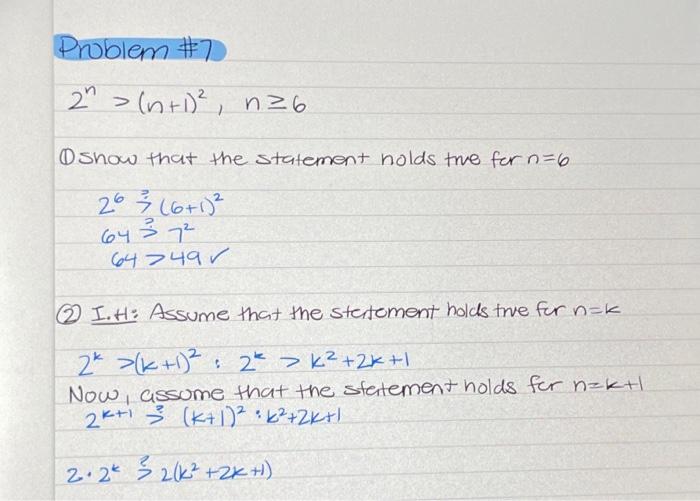 Problem #7
2ⁿ > (n+1)², n≥6
① Show that the statement holds true for n=6
2⁶ >? (6+1)²
64 >? 7²
64 > 49 ✓
② I.H: Assume that the statement holds true for n=k
2ᵏ >(k+1)² : 2ᵏ > k²+2k+1
Now, assume that the statement holds for n=k+1
2ᵏ⁺¹ >? (k+1)² : k²+2k+1
2·2ᵏ >? 2(k²+2k+1)